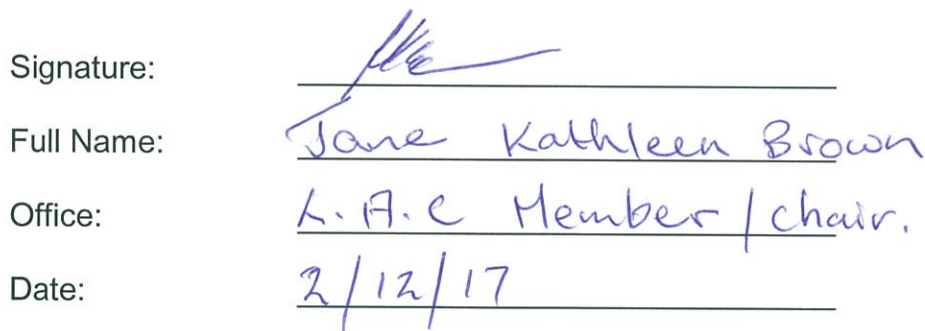 Signature:
Full Name: Jane Kathleen Brown
Office: L.A.C Member / Chair.
Date: 2/12/17